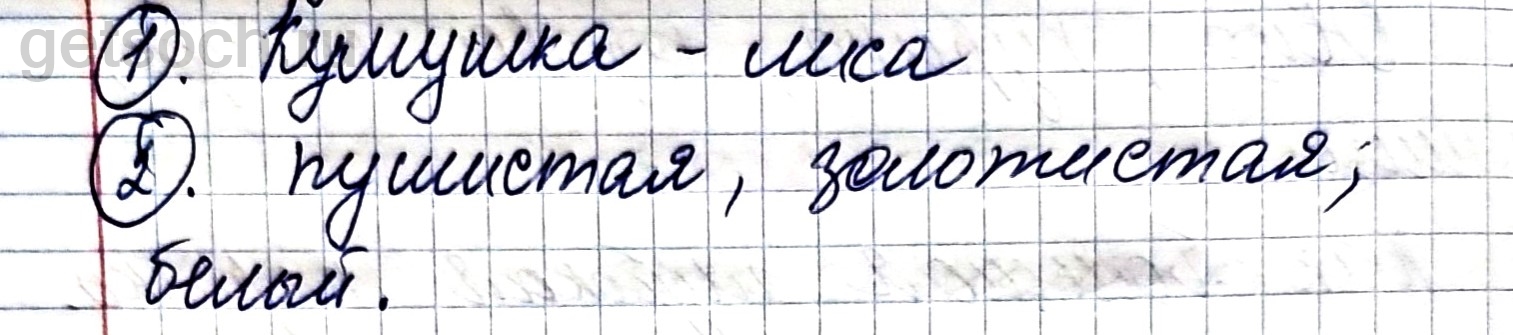 1. Кумушка - лиса
2. пушистая, золотистая;
белый.